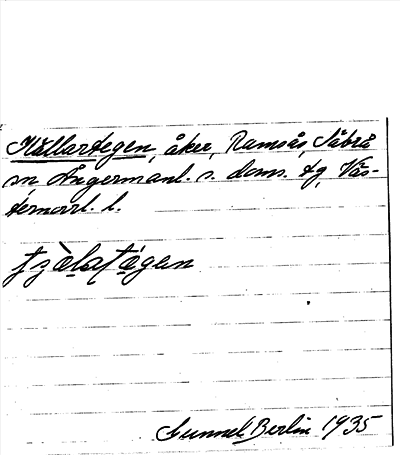 Källartegen, åker, Ramsås, Säbrå
sn Ångermanl. s. doms. tg, Väs-
ternorrl. l.
Gunnel Berlin 1935